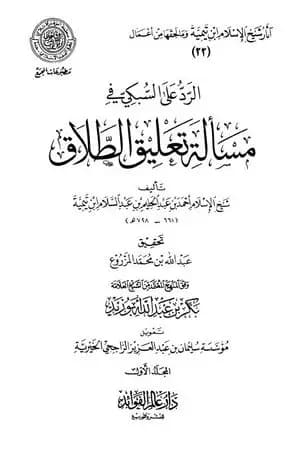 آثار شيخ الإسلام ابن تيمية وما لحقها من أعمال
(٢٢)
مطبوعات المجمع
الرد على السبكي في
مسألة تعليق الطلاق
تأليف
شيخ الإسلام أحمد بن عبد الحليم بن عبد السلام ابن تيمية
(٦٦١ - ٧٢٨هـ)
تحقيق
عبد الله بن محمد المزروع
وفق المنهج المعتمد من الشيخ العلامة
بكر بن عبد الله أبو زيد
تمويل
مؤسسة سليمان بن عبد العزيز الراجحي الخيرية
المجلد الأول
دار عالم الفوائد
للنشر والتوزيع